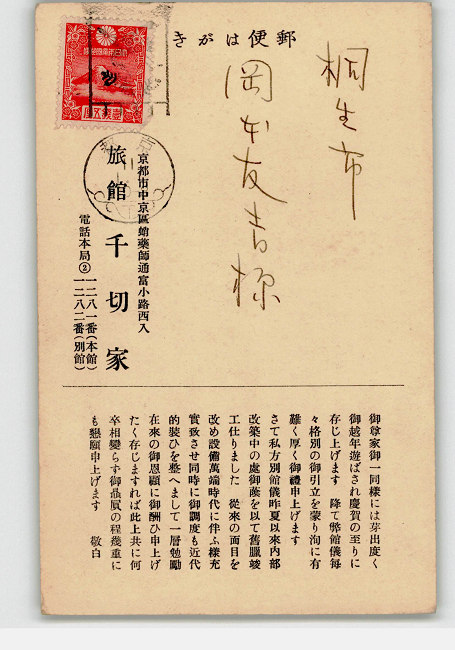 郵便はがき
桐生市
岡本友吉様
京都市中京區蛸藥師通富小路西入
旅館 千切家
電話本局②一二八一番(本館)
一二八二番(別館)
御尊家御一同樣には芽出度く
御越年遊ばされ慶賀の至りに
存じ上げます 降て弊館儀毎
々格別の御引立を蒙り洵に有
難く厚く御禮申上げます
さて私方別館儀昨夏以來内部
改築中の處御蔭を以て舊臘竣
工仕りました 從來の面目を
改め設備萬端時代に伴ふ樣充
實致させ同時に御調度も近代
的裝ひを整へまして一層勉勵
在來の御恩顧に御酬ひ申上げ
たく存じますれば此上共に何
卒相變らず御贔屓の程幾重に
も懇願申上げます 敬白